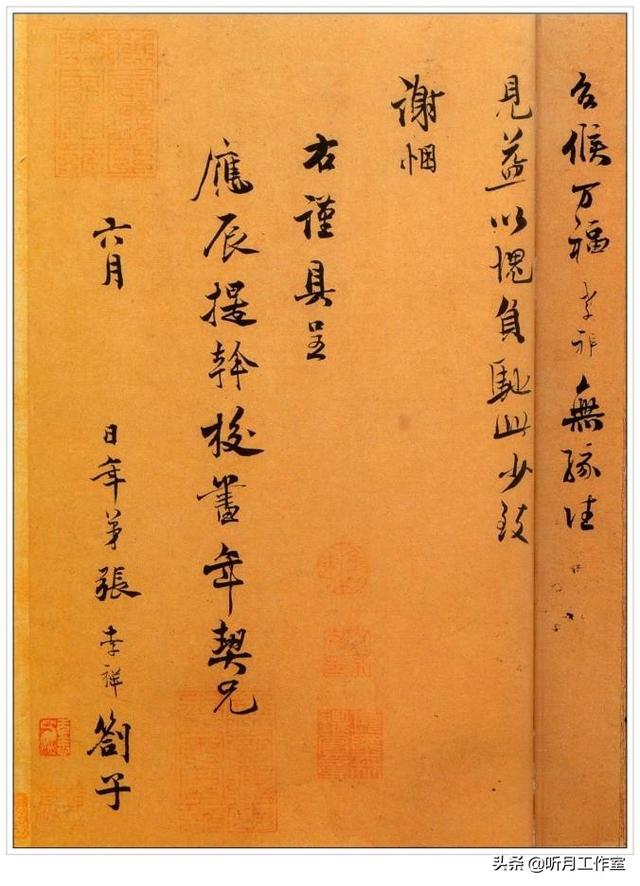 台候万福孝祥無緣往
見益以愧負馳此少致
謝悃
右謹具呈
應辰提幹校書年契兄
六月 日年弟張孝祥劄子
头条 @听月工作室